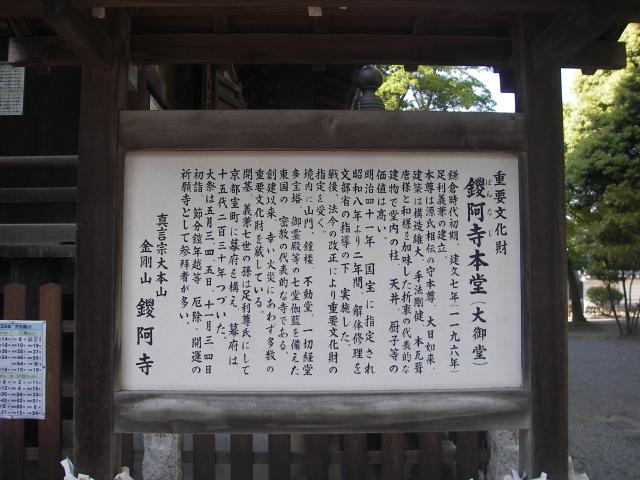 重要文化財
鑁阿寺本堂（大御堂）
ばん な じ
鎌倉時代初期、建久七年（一一九六年）
足利義兼の建立。
本尊は源氏相伝の守本尊、大日如来、
建築は構造雄大、手法剛健、本瓦葺
唐様と和様を加味した折衷の代表的な
建物で堂内の柱、天井、厨子等の
価値は高い。
明治四十一年、国宝に指定され
昭和八年より二年間、解体修理を
文部省の指導の下、実施した。
戦後、法令の改正により重要文化財の
指定を受く。
境内に山門、鐘楼、不動堂、一切経堂
多宝塔、御霊殿等の七堂伽藍を備えた
東国の、密教の代表的な寺である。
創建以来、幸い火災にあわず多数の
重要文化財を蔵している。
開基、義兼七世の孫は足利尊氏にして
京都室町に幕府を構え、幕府は
十五代二百三十年つづいた。
大祭は五月三、四、五日、十一月三、四日
初詣、節分鎧年越等、厄除、開運の
祈願寺として参拝者が多い。
真言宗大本山
金剛山 鑁阿寺